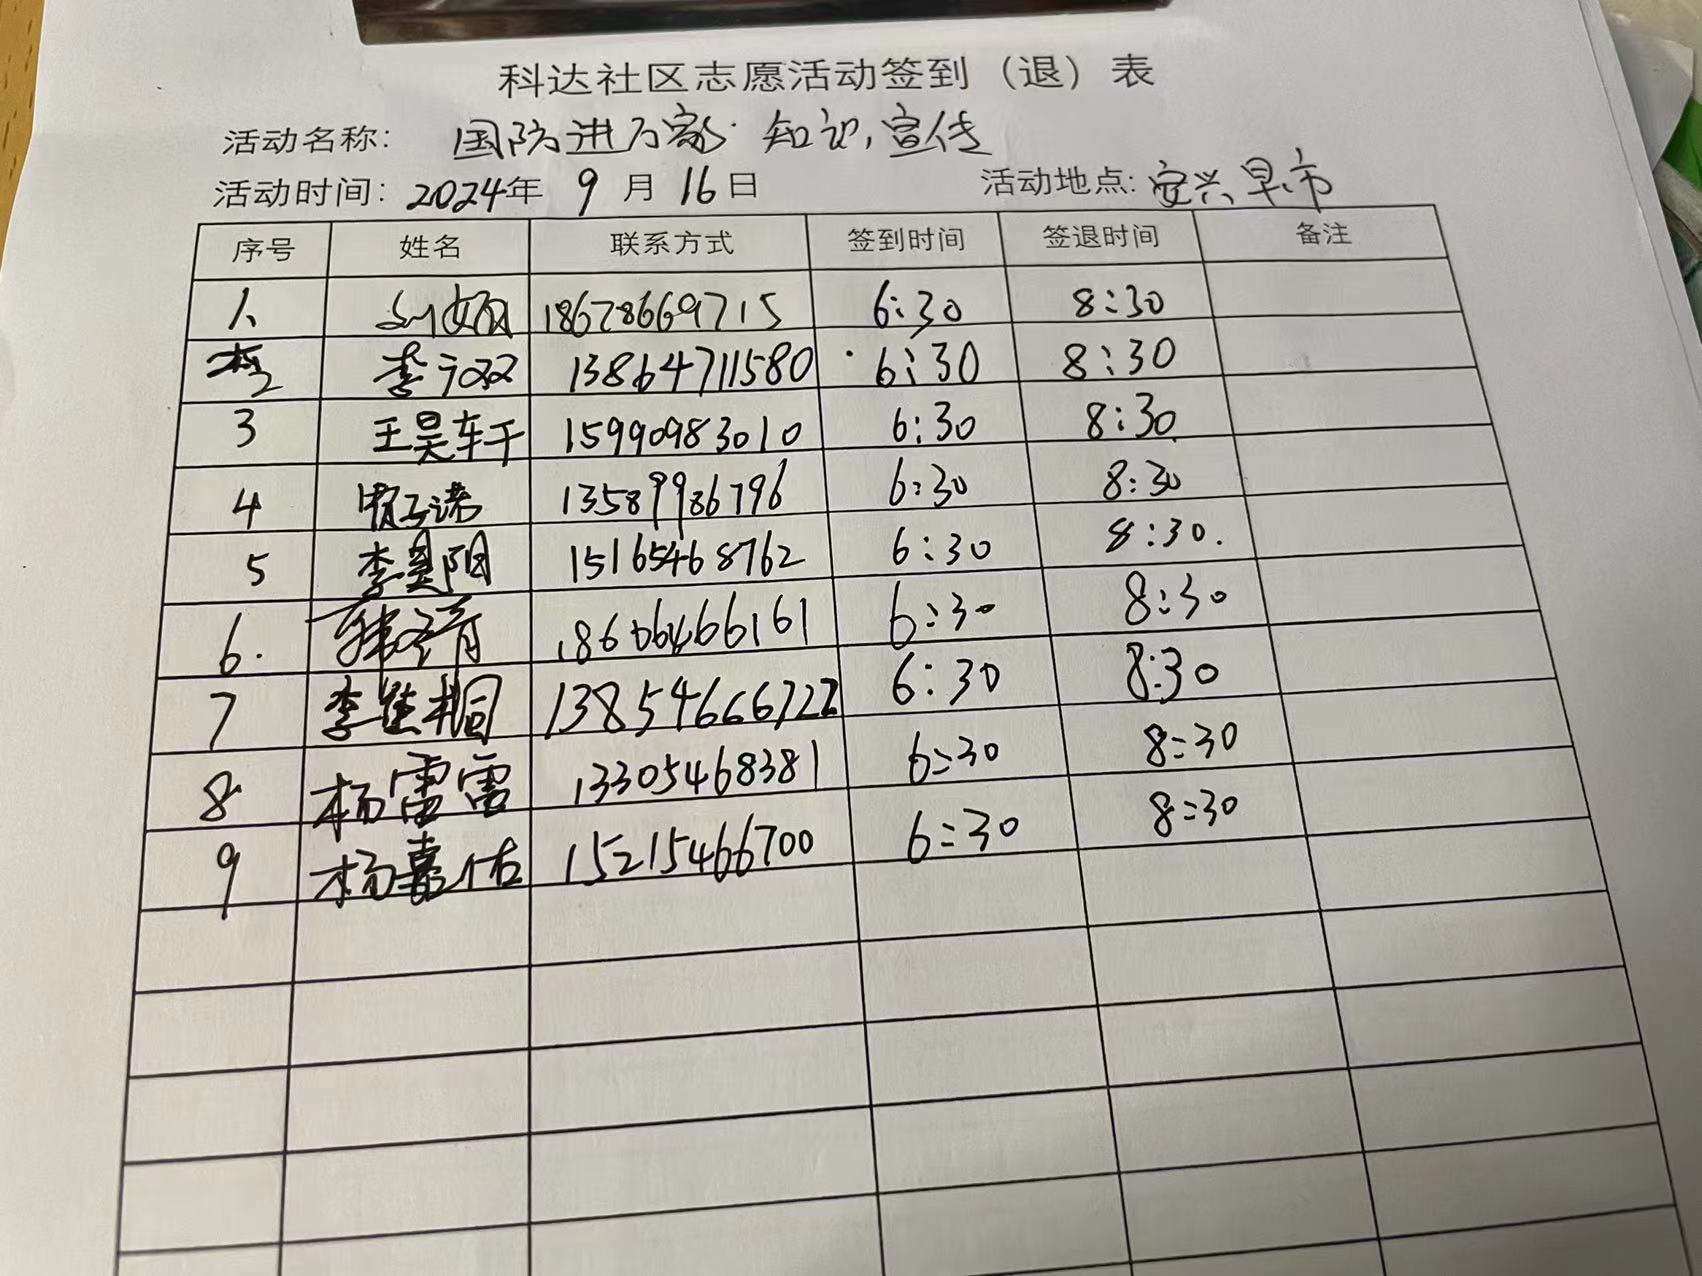 科达社区志愿活动签到（退）表
活动名称： 国防进万家·知识宣传
活动时间：2024年 9月16日 活动地点：安兴早市
序号 姓名 联系方式 签到时间 签退时间 备注
1、 18678669715 6:30 8:30
2 李 13864711580 6:30 8:30
3 王昊轩 15990983010 6:30 8:30
4 13589986796 6:30 8:30
5 李昊阳 15165468762 6:30 8:30.
6. 6:30 8:30
7 李佳桐 13854666722 6:30 8:30
8 杨雷雷 13305468381 6:30 8:30
9 杨嘉佑 15215466700 6:30 8:30